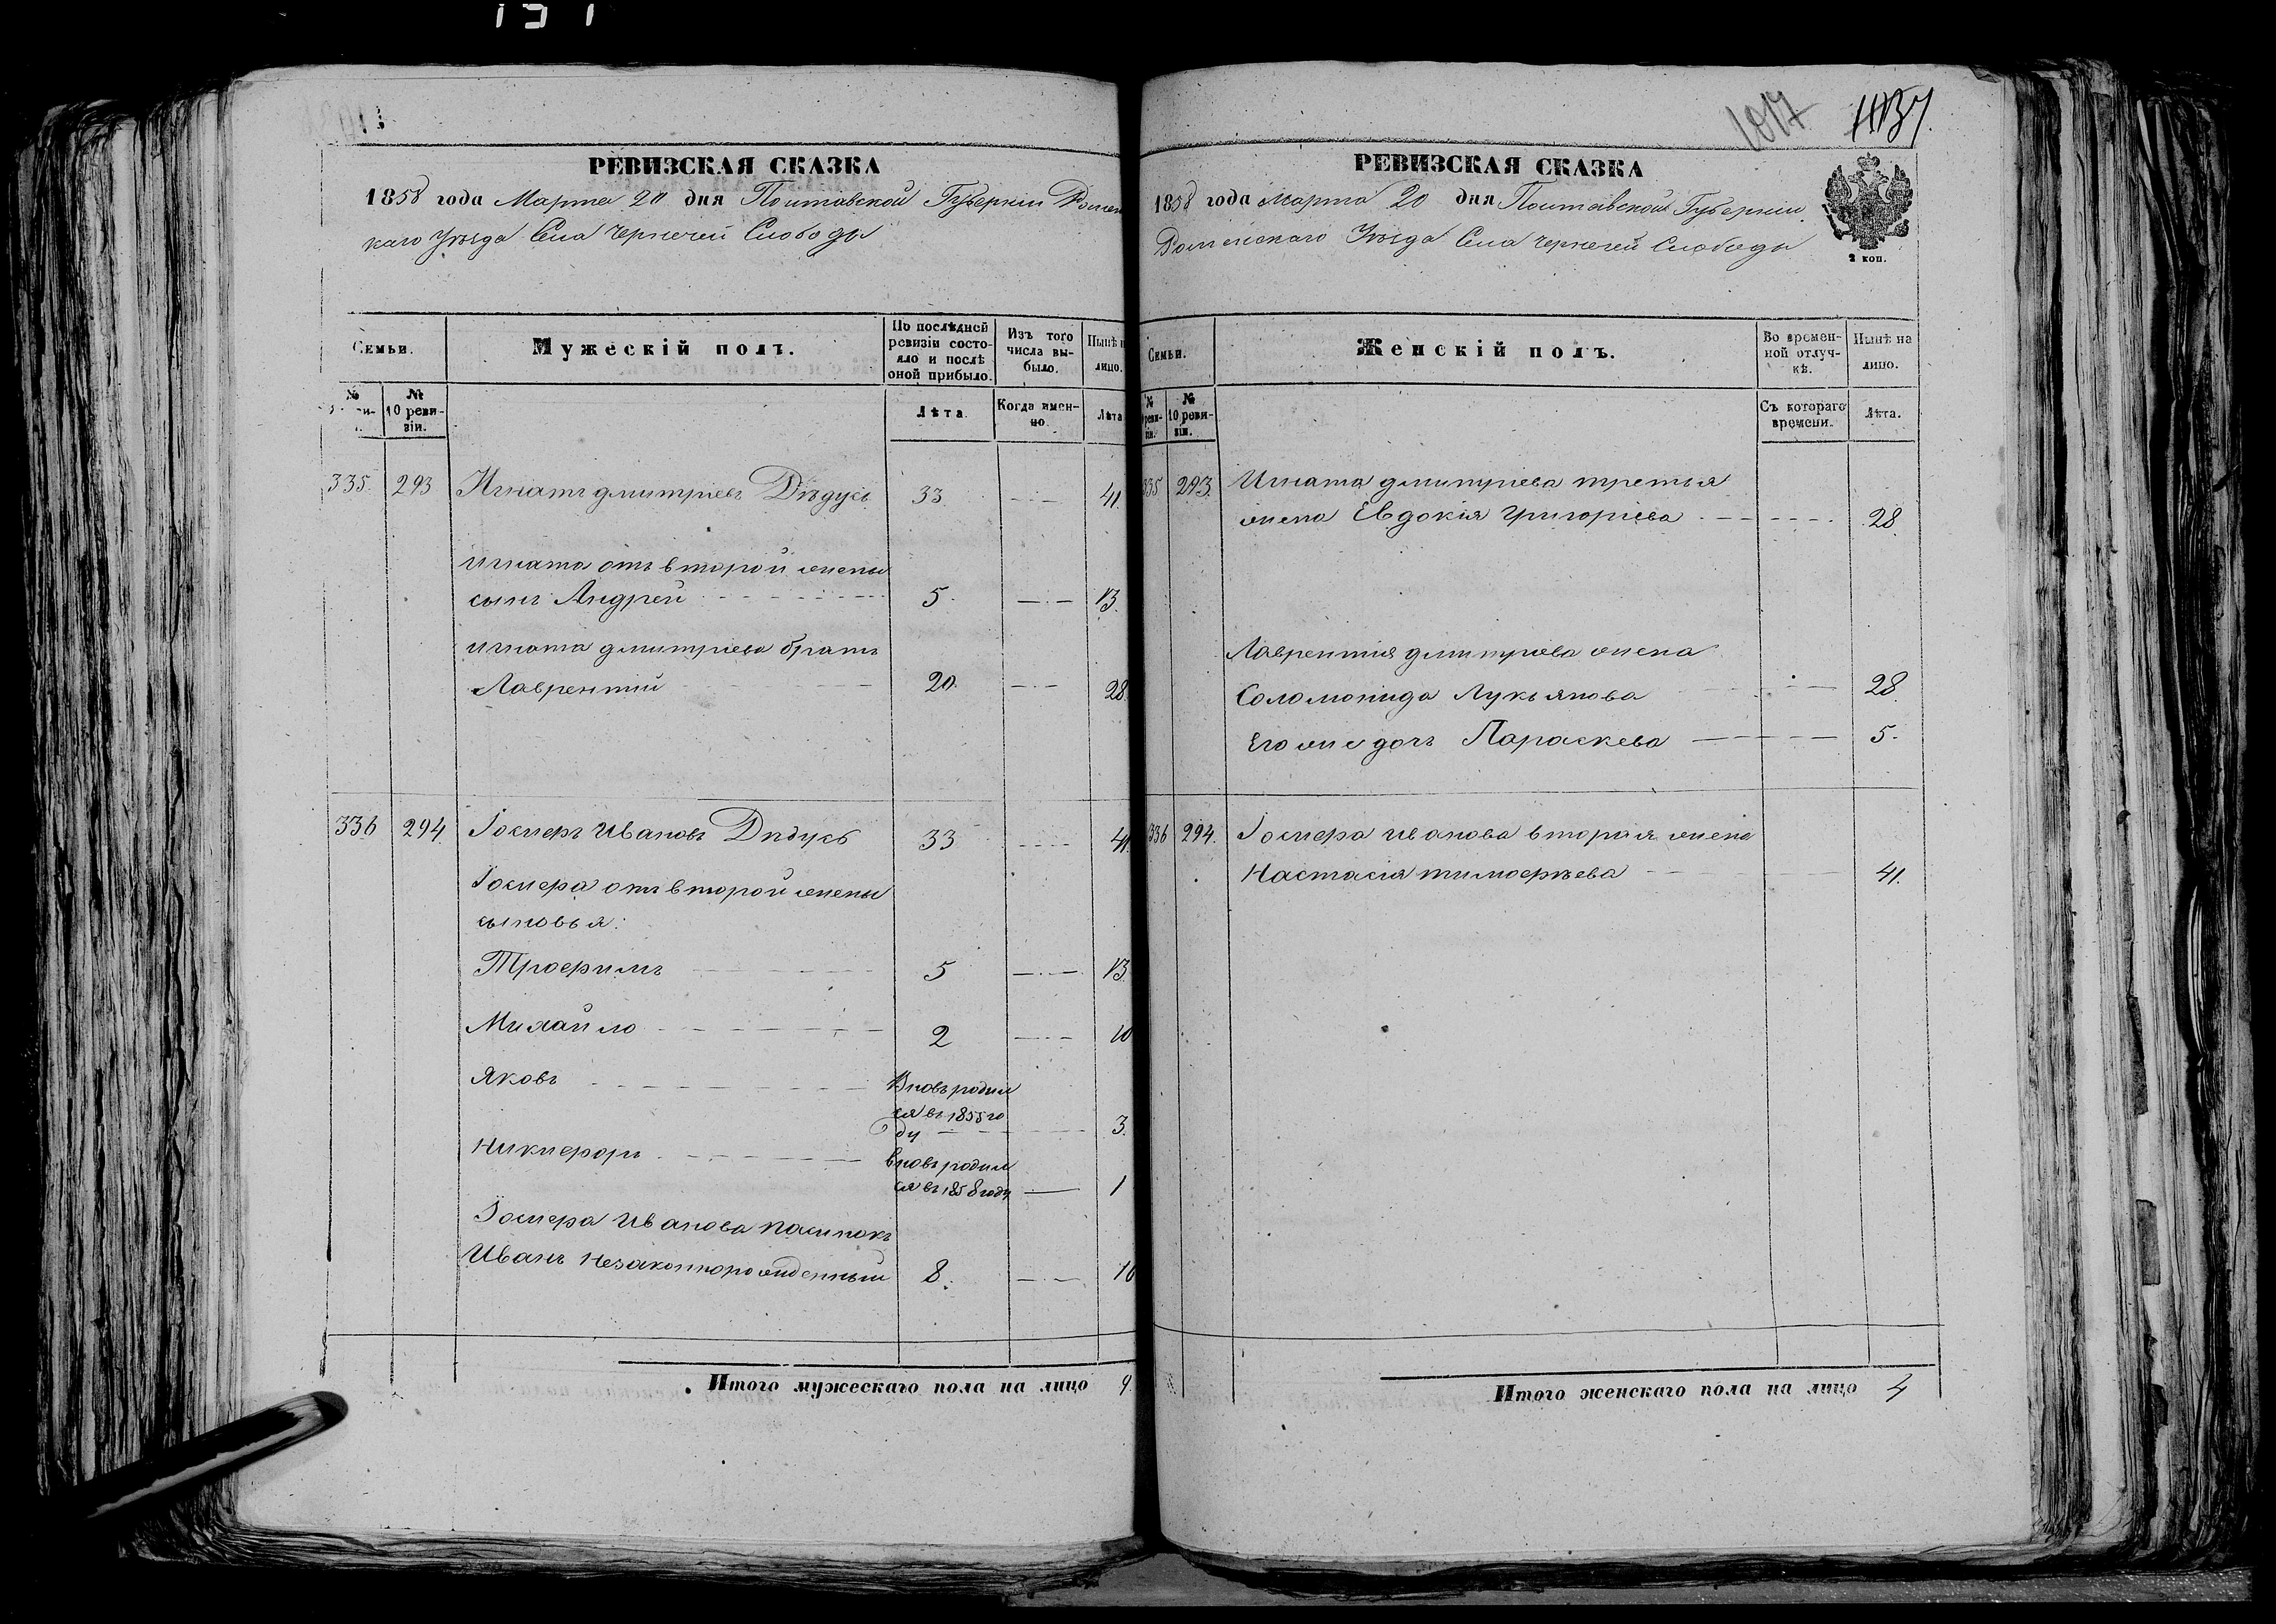 1017 1137.
РЕВИЗСКАЯ СКАЗКА
1858 года Марта 20 дня Полтавской Губерніи Ромен
каго Уѣзда Села Чернечей Слободы
Семьи.
Мужескій полъ.
По послѣдней ревизіи состояло и послѣ оной прибыло.
Изъ того числа выбыло.
Нынѣ н лицо.
№
№ 10 ревизіи.
Лѣта.
Когда именно.
Лѣта
335. 293 Игнатъ Дмитріевъ Дѣдусь 33 41.
Игната отъ второй жены
сынъ Андрей 5. 13.
Игната Дмитріева братъ
Лаврентій 20. 28.
336 294. Іосифъ Ивановъ Дѣдусь 33 41.
Іосифа отъ второй жены
сыновья:
Трофимъ 5 13.
Михайло 2 10
Яковъ Вновь родил
ся въ 1855 го
ду 3.
Никифоръ вновь родил
ся въ 1858 году 1
Іосифа Иванова пасинокъ
Иванъ Незаконнорожденный 8. 16
Итого мужескаго пола на лицо 9.
РЕВИЗСКАЯ СКАЗКА
1858 года Марта 20 дня Полтавской Губерніи
Роменскаго Уѣзда Села Чернечей Слободы
2 коп.
Семьи.
Женскій полъ.
Во временной отлучкѣ.
Нынѣ на лицо.
№ ревизіи.
№ 10 ревизіи.
Съ котораго времени.
Лѣта.
335 293. Игната Дмитріева третья
жена Евдокія Григоріева 28.
Лаврентія Дмитріева жена
Соломонида Лукьянова 28.
Его же дочь Параскева 5.
336 294. Іосифа Иванова вторая жена
Настасія Тимофѣева 41.
Итого женскаго пола на лицо 4